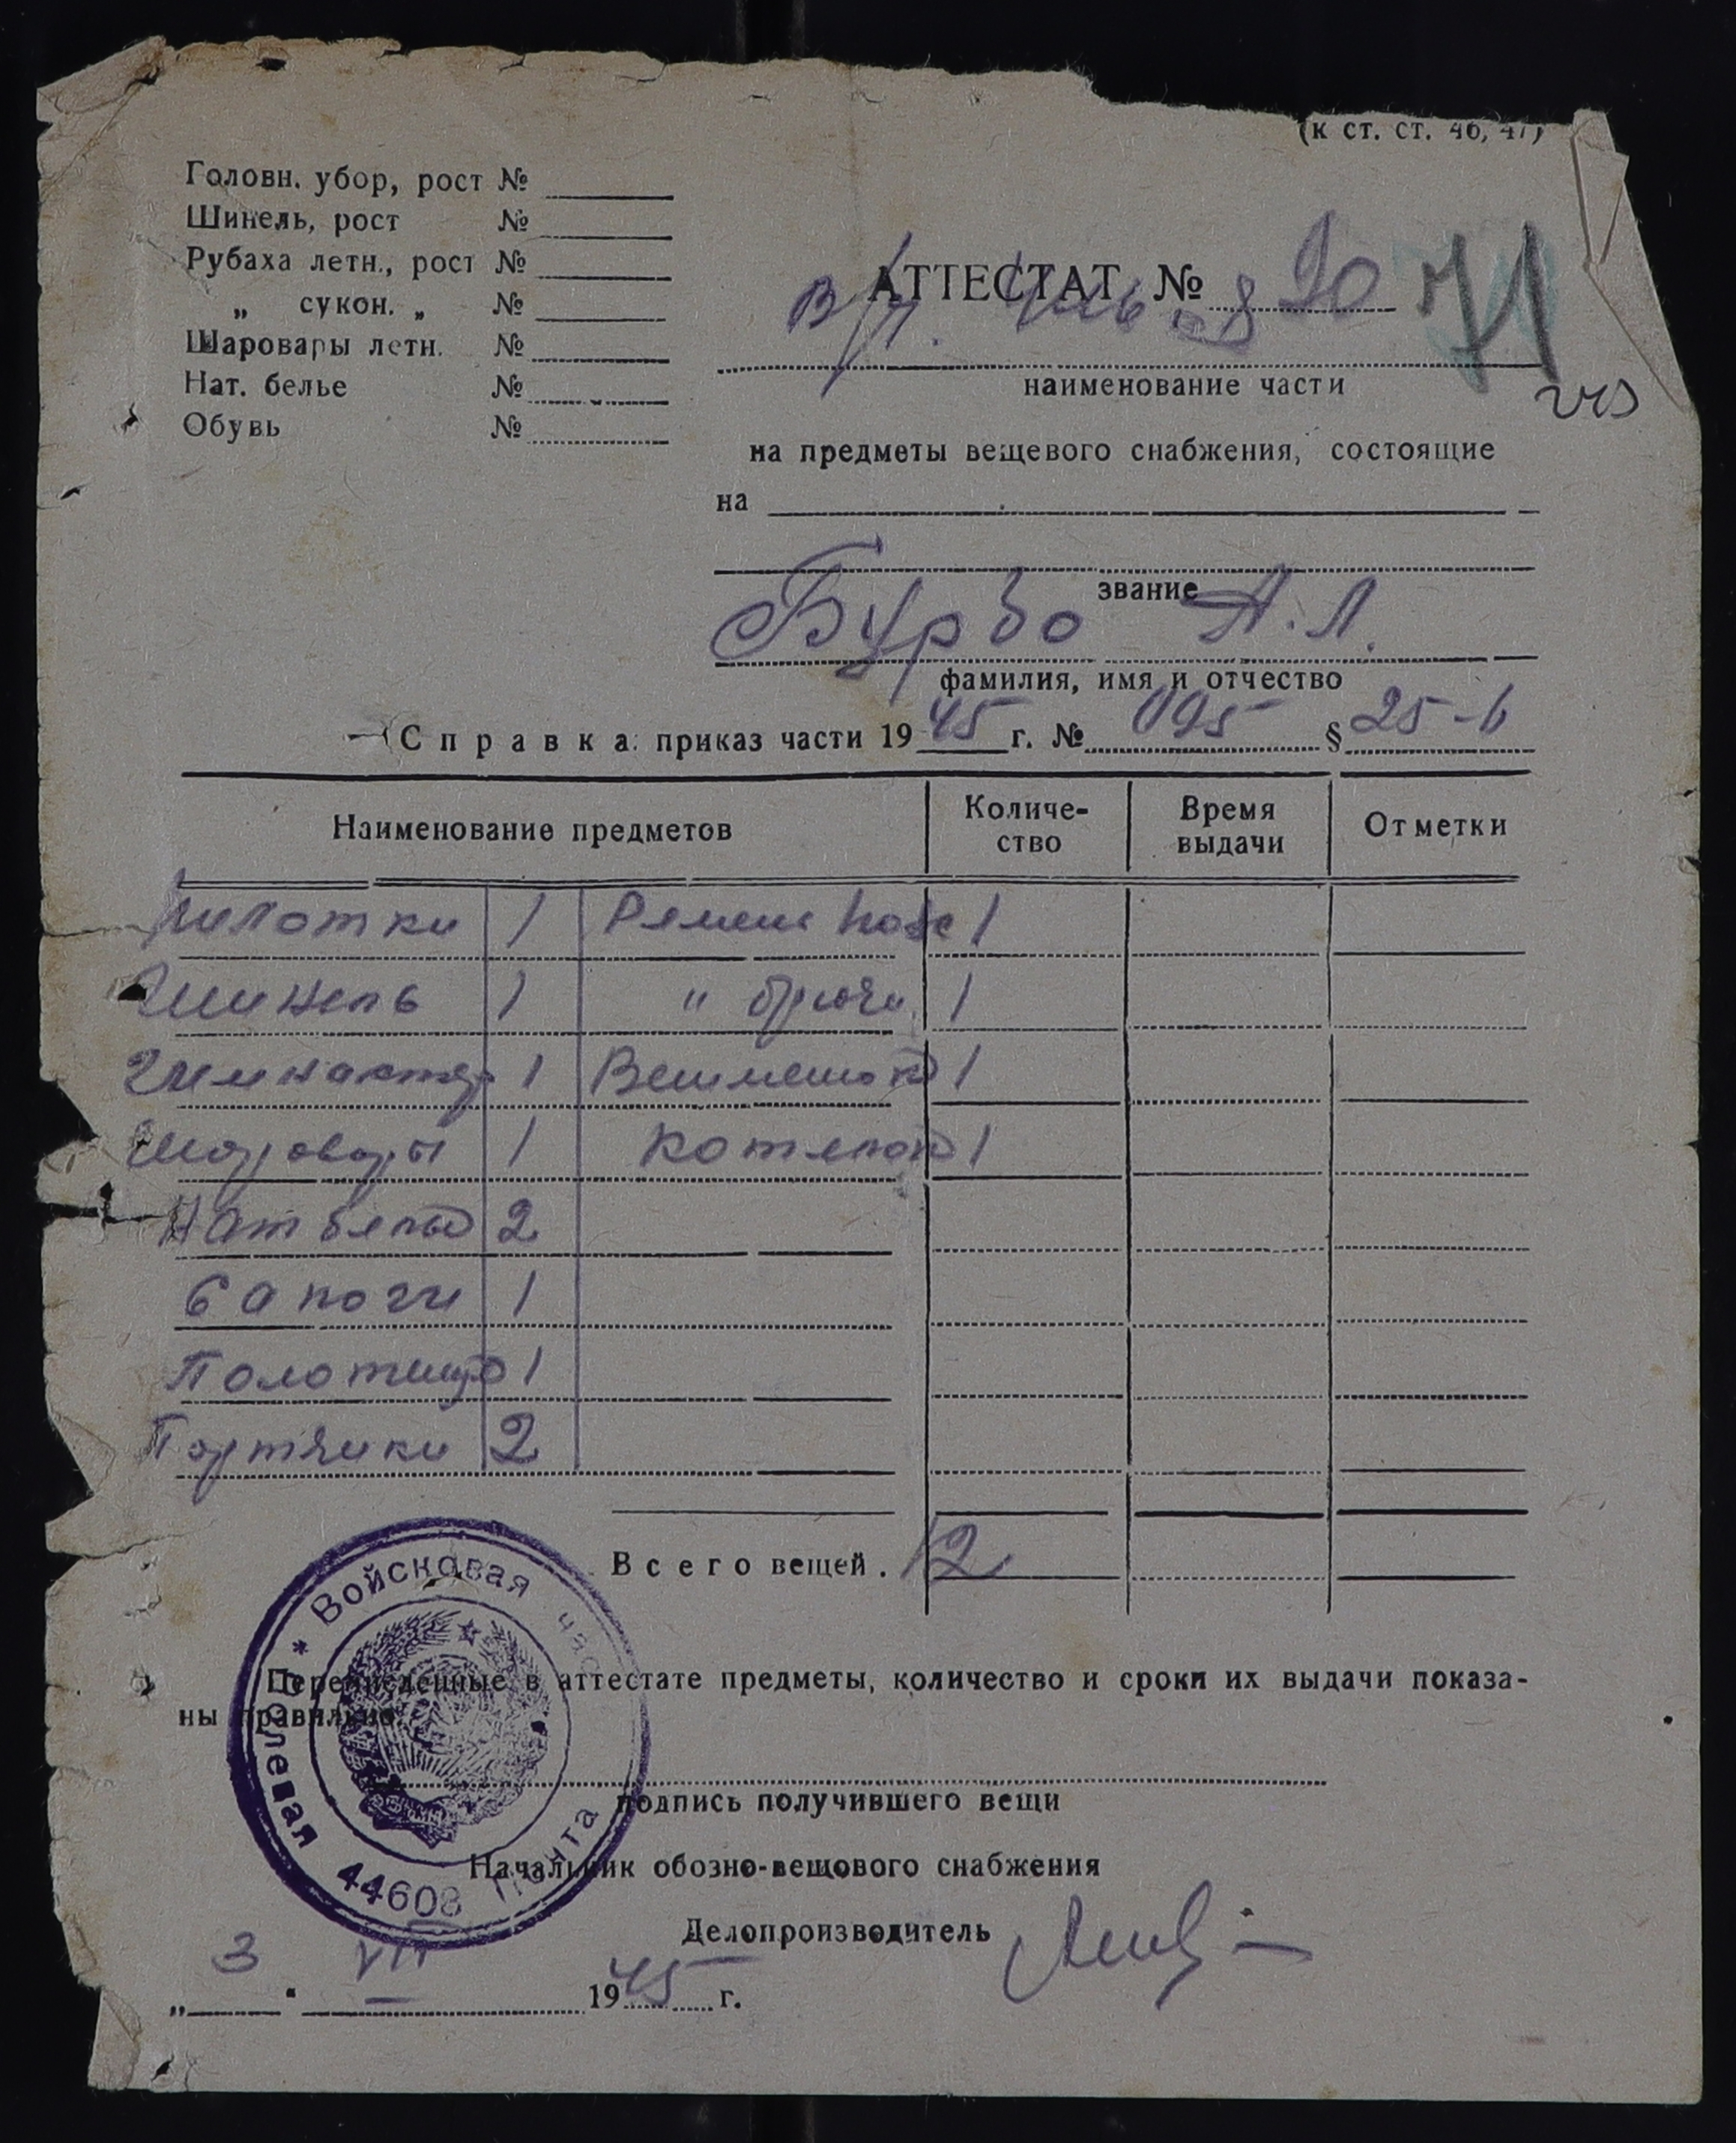 (к ст. ст. 46, 47)
Головн. убор, рост №
Шинель, рост №
Рубаха летн., рост №
„ сукон. „ №
Шаровары летн. №
Нат. белье №
Обувь №
АТТЕСТАТ № 90 71
в/ч.
наименование части
на предметы вещевого снабжения, состоящие
на
звание
Бурбо А.Л.
фамилия, имя и отчество
Справка: приказ части 1945 г. № 095 § 25-б
Наименование предметов Количе-ство Время выдачи Отметки
Пилотки 1 Ремень 1
Шинель 1 " брючн. 1
Гимнастер 1 Вещмешок 1
Шаровары 1 Котелок 1
Нат белье 2
Сапоги 1
Полотенцо 1
Портянки 2
Всего вещей . 12
Перечисленные в аттестате предметы, количество и сроки их выдачи показа-
ны правильно.
подпись получившего вещи
Начальник обозно-вещового снабжения
Делопроизводитель
„3" VII 1945 г.
* Войсковая часть
Полевая почта 44608